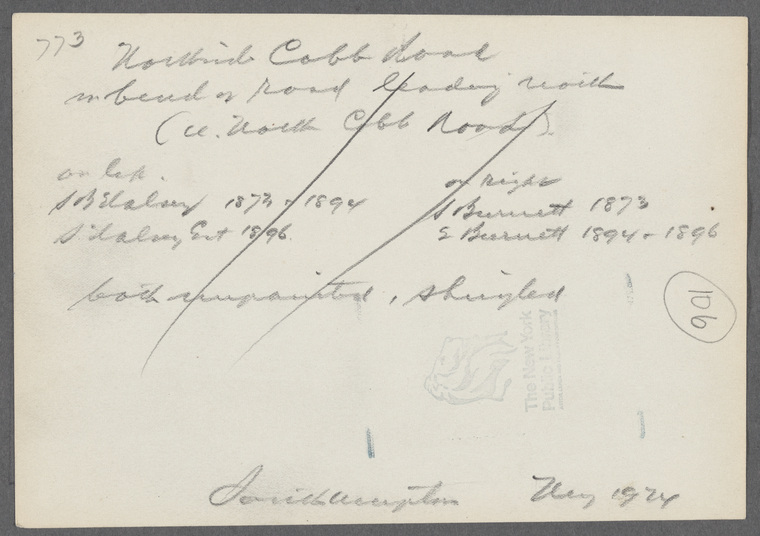 773
Northside Cobb Road
in bend of road leading north
(ie. North Cobb Road).
on left.
on right
S B Halsey 1873 + 1894
S Burnett 1873
S Halsey Est 1896.
E Burnett 1894 + 1896
both unpainted, shingled
106
The New York
Public Library
Southampton May 1924